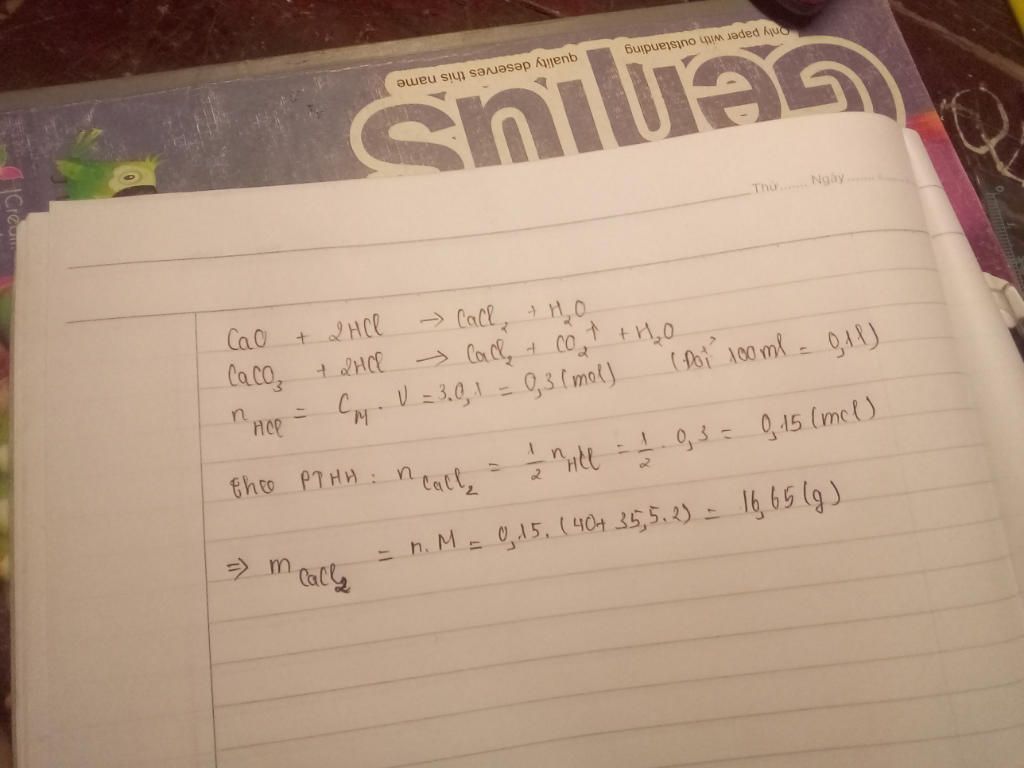 Only paper with outstanding
quality deserves this name
Genius
Thứ....... Ngày.......
CaO + 2HCl → CaCl₂ + H₂O
CaCO₃ + 2HCl → CaCl₂ + CO₂↑ + H₂O
n_HCl = C_M . V = 3.0,1 = 0,3 (mol) (Đổi 100ml = 0,1l)
theo PTHH : n_CaCl₂ = 1/2 n_HCl = 1/2 . 0,3 = 0,15 (mol)
⇒ m_CaCl₂ = n.M = 0,15. (40+ 35,5.2) = 16,65 (g)